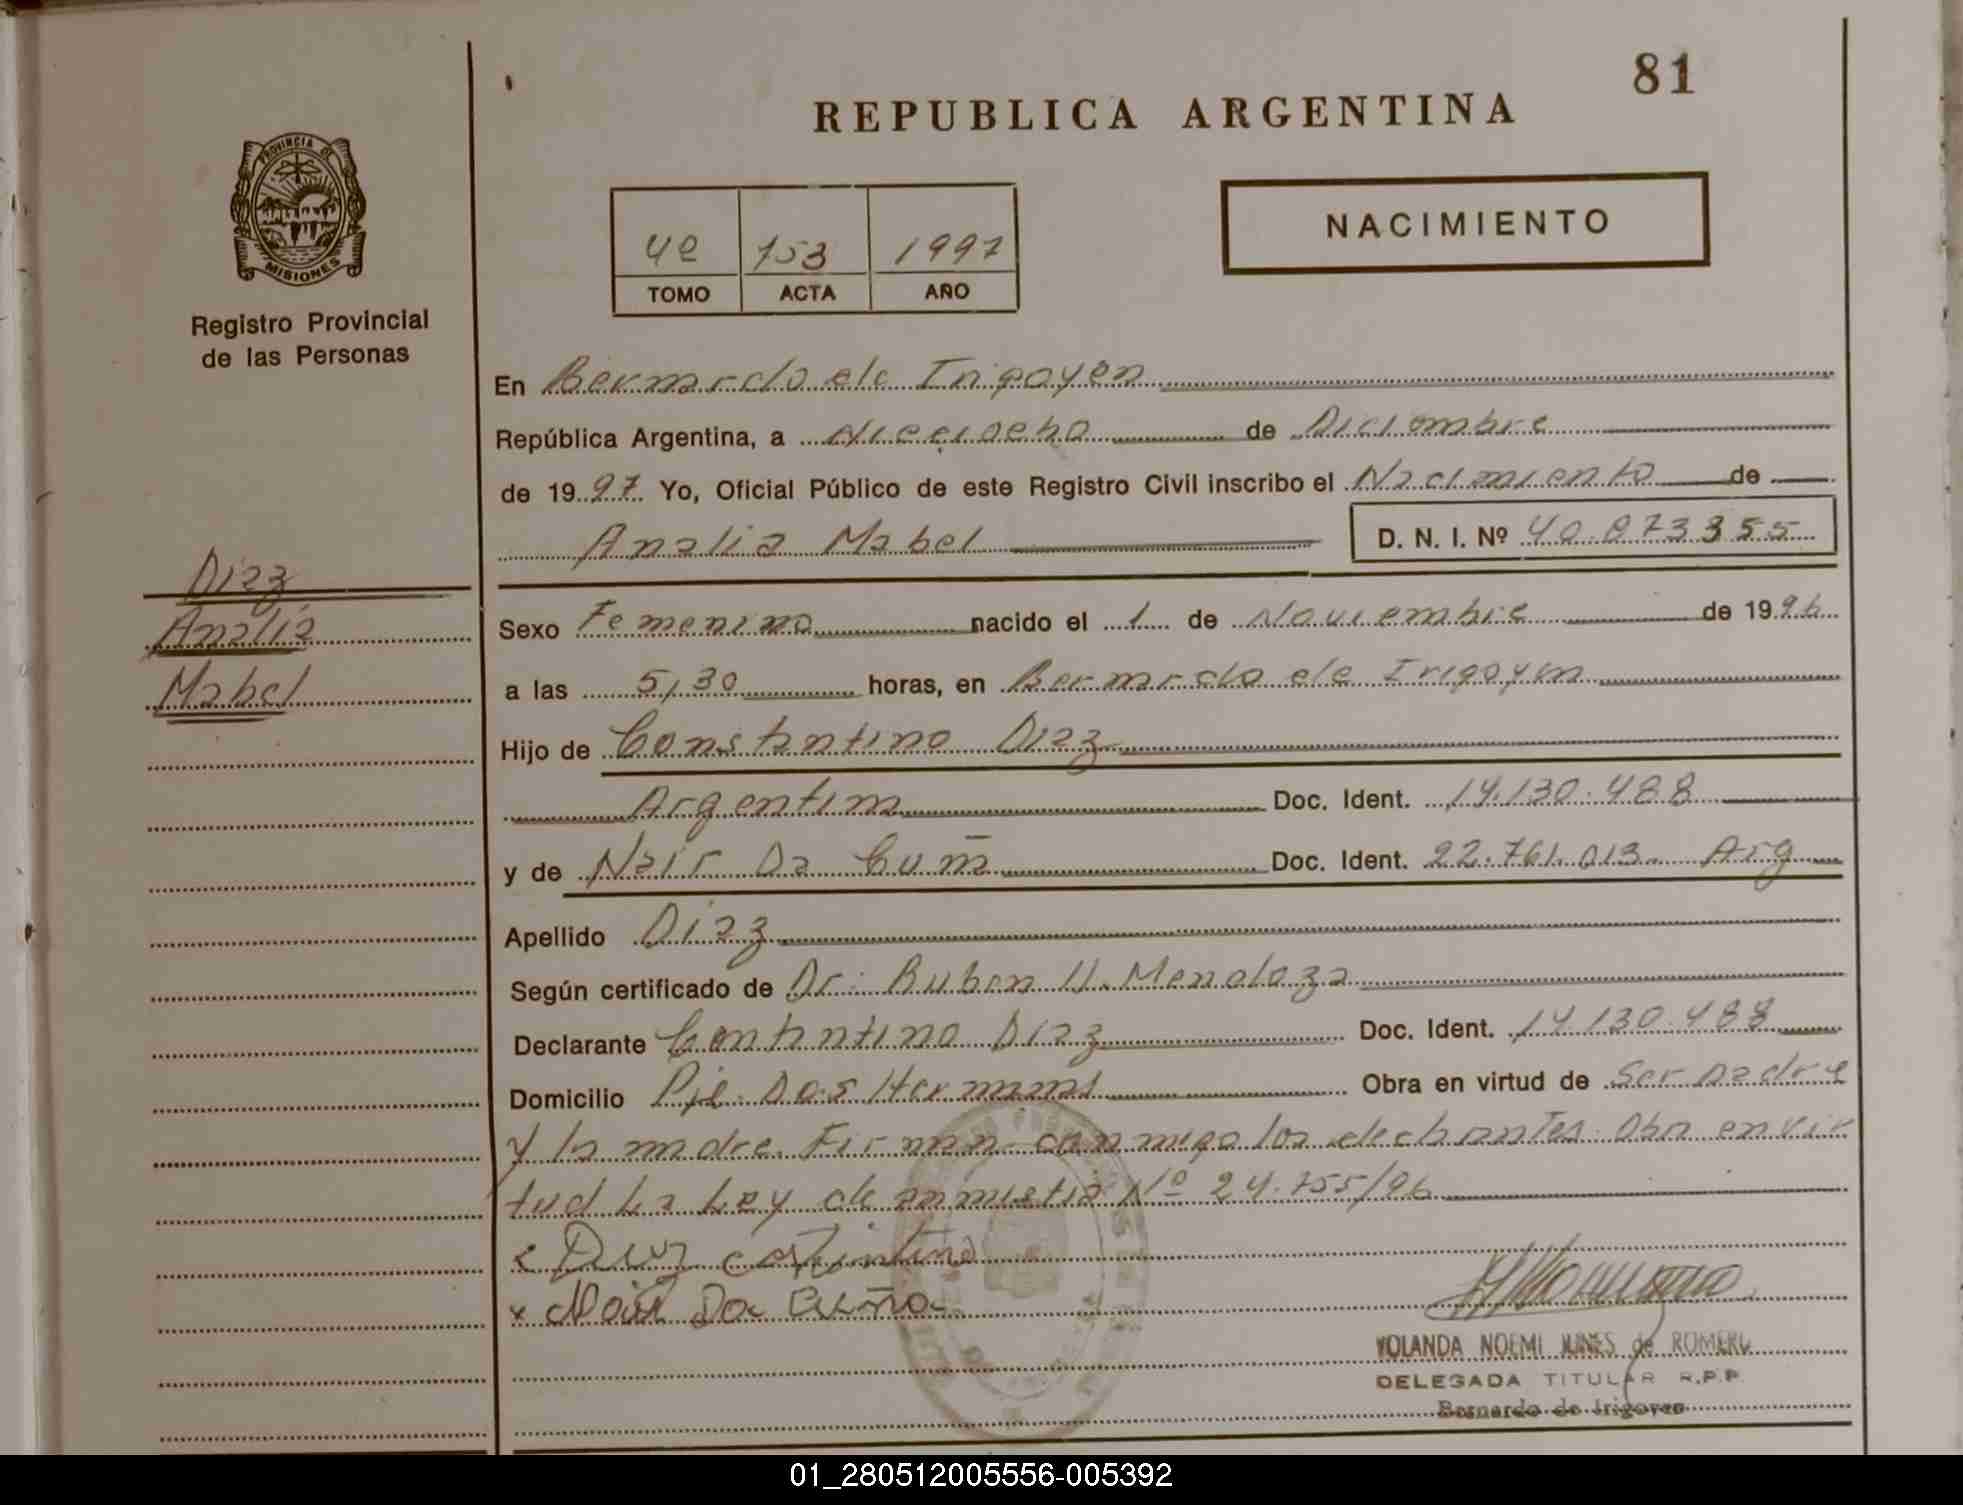 81
REPUBLICA ARGENTINA
PROVINCIA DE
MISIONES
Registro Provincial
de las Personas
NACIMIENTO
4º 753 1997
TOMO ACTA AÑO
En Bernardo de Irigoyen
República Argentina, a Dieciocho de Diciembre
de 1997 Yo, Oficial Público de este Registro Civil inscribo el Nacimiento de
Analia Mabel D. N. I. Nº 40.873355
Diaz
Analia
Mabel
Sexo Femenino nacido el 1 de Noviembre de 1996
a las 5,30 horas, en Bernardo de Irigoyen
Hijo de Constantino Diaz
Argentina Doc. Ident. 14.130.488
y de Nair Da Cuña Doc. Ident. 22.761.013 Arg
Apellido Diaz
Según certificado de Dr. Ruben H. Mendoza
Declarante Contantino Diaz Doc. Ident. 14.130.488
Domicilio Pje. Dos Hermanas Obra en virtud de Ser Padre
y la madre. Firman conmigo los declarantes. Obra en vir
tud La Ley de amnistia Nº 24.755/96
x Diaz
x Nair Da Cuña
YOLANDA NOEMI de ROMERO
DELEGADA TITULAR R.P.P.
Bernardo de Irigoyen
01_280512005556-005392